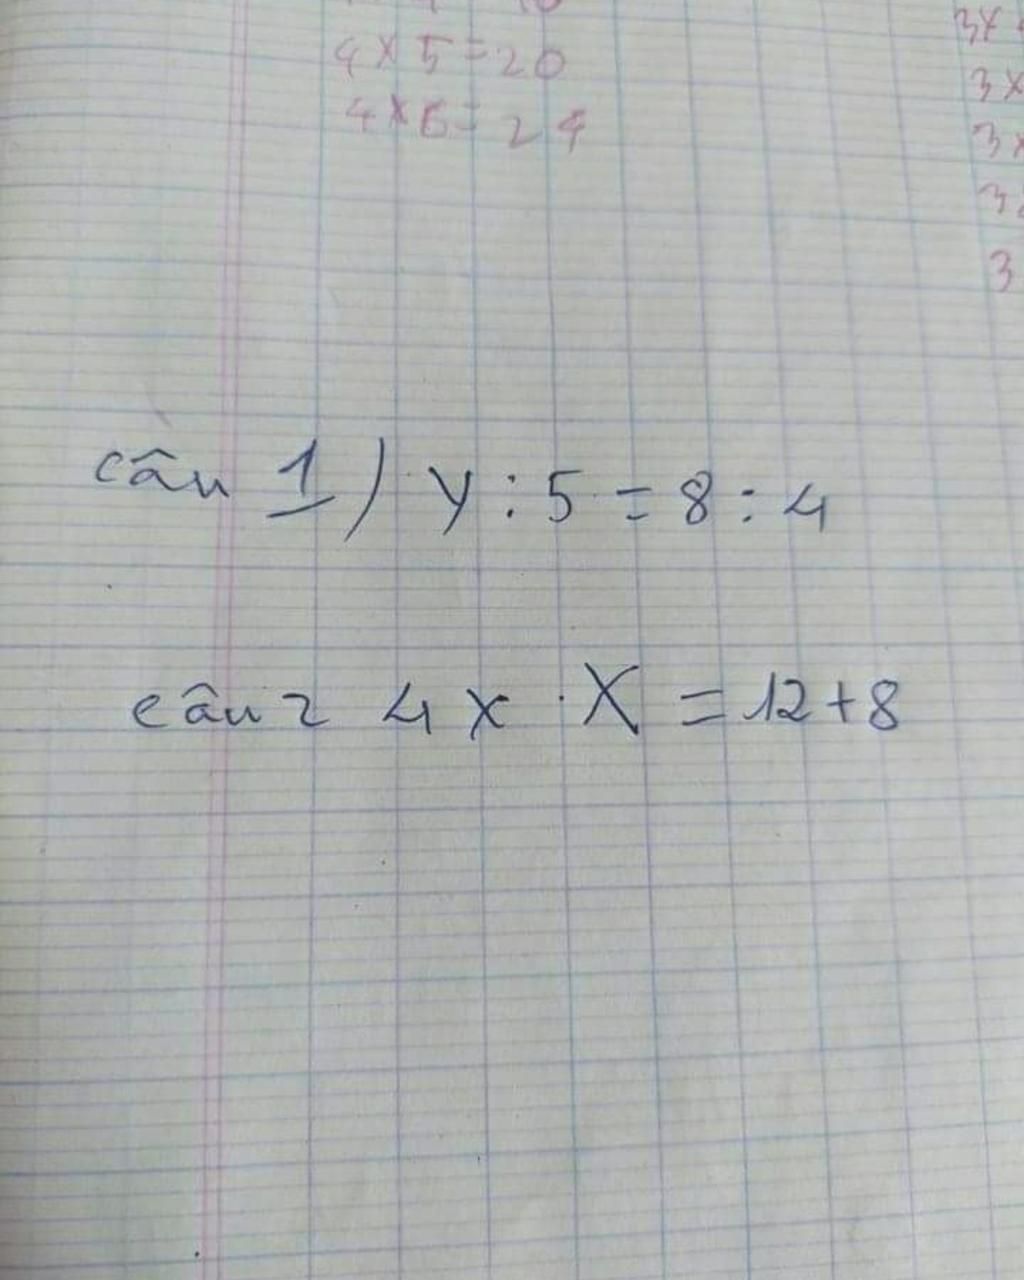 4 x 5 = 20
4 x 6 = 24
3 x
3 x
3 x
3
3
câu 1) y : 5 = 8 : 4
câu 2 4 x . X = 12 + 8